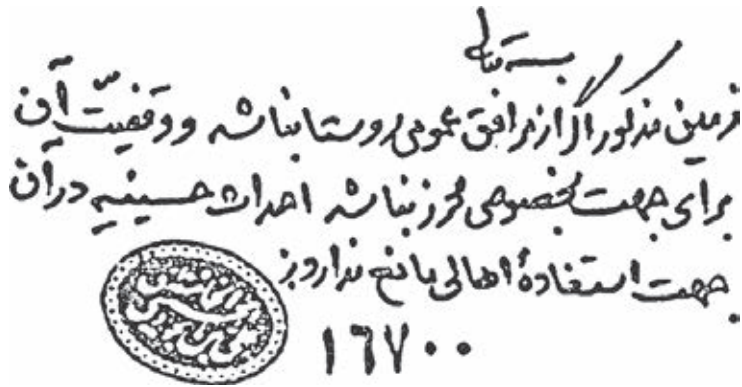 بسمه تعالی
زمین مذکور اگر از مرافق عمومی روستا نباشد و وقفیّت آن
برای جهت بخصوصی محرز نباشد احداث حسینیه در آن
جهت استفادهٔ اهالی مانع ندارد
۱۶۷۰۰